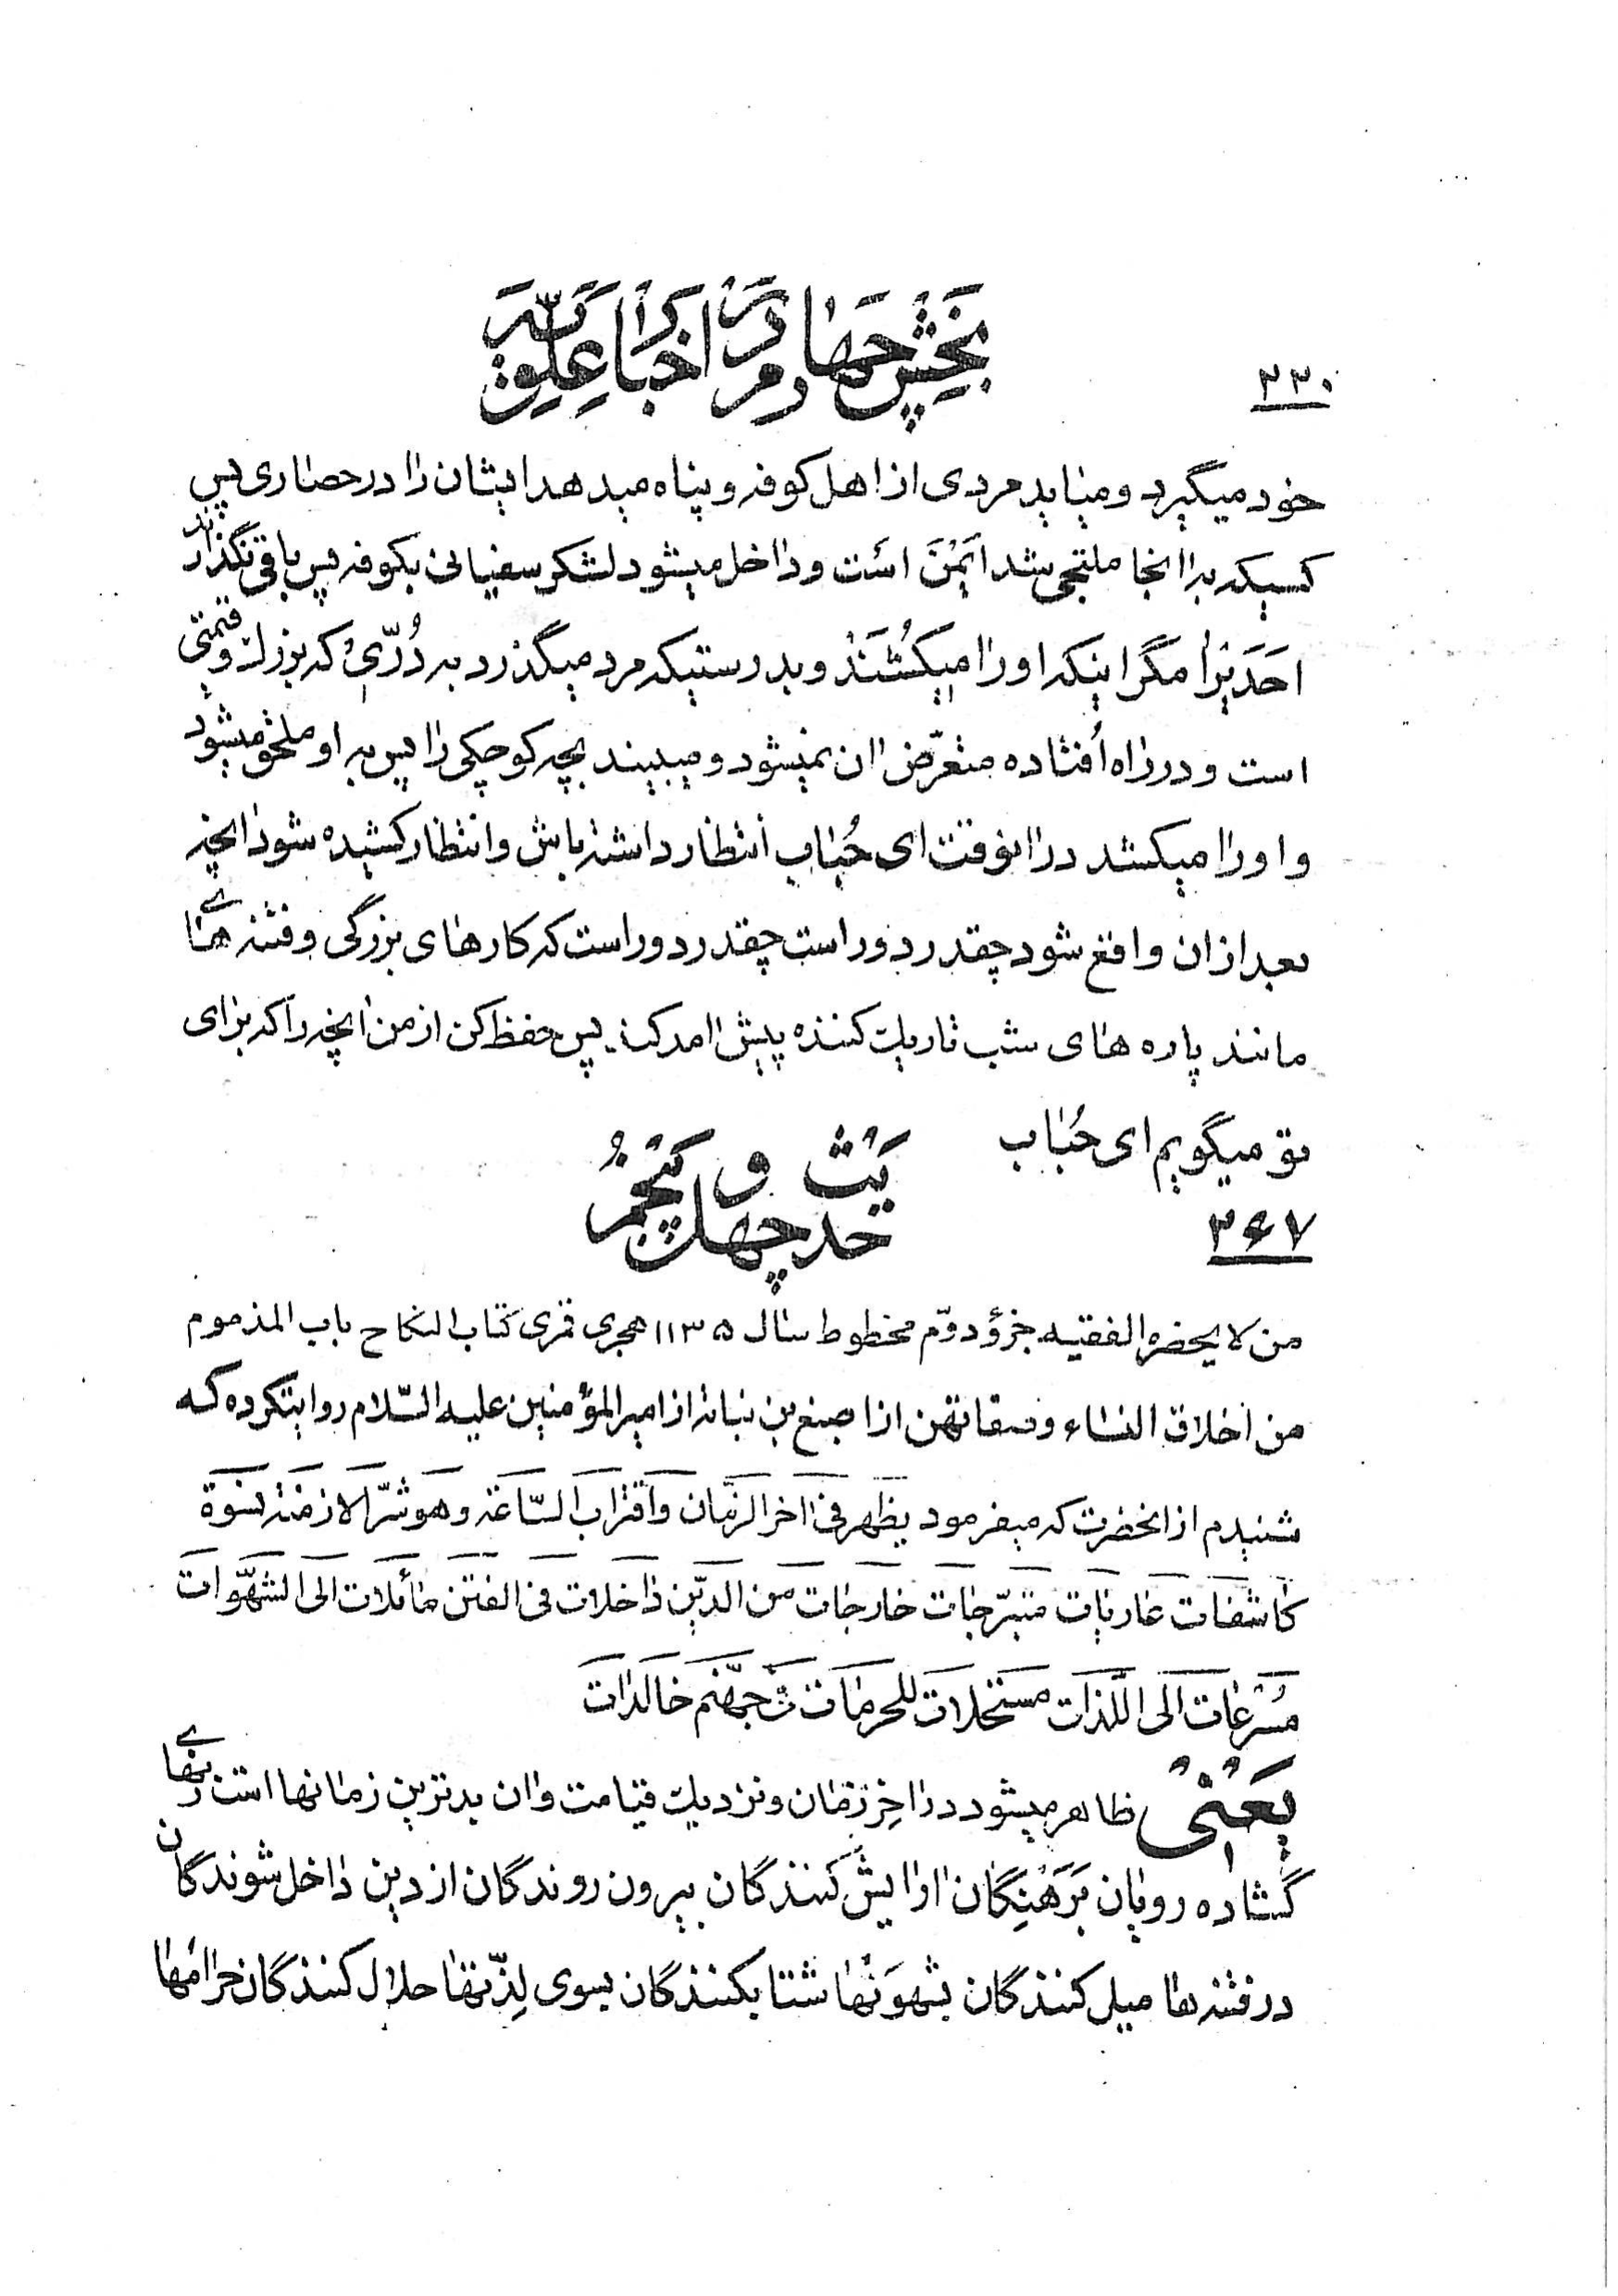 بخش چهارم در اخبار علویه
۲۳۰
خود میگیرد و میاید مردی از اهل کوفه و پناه میدهد ایشان را در حصاری پس
کسیکه به اانجا ملتجی شد ایمن است و داخل میشود لشکر سفیانی بکوفه پس باقی نگذارند
احدیرا مگر اینکه او را میکشند و بدرستیکه مرد میگذرد به دُرّیٔ که بزرك و قیمتی
است و در راه اُفتاده متعرّض اان نمیشود و میبیند بچه کوچکی را پس به او ملحق میشود
و او را میکشد در اانوقت ای حُباب انتظار داشته باش و انتظار کشیده شود اانچه
بعد از ان واقع شود چقدر دور است چقدر دور است که کارهای بزرگی و فتنه هائے
مانند پاره های شب تاریك کننده پیش اامد کند پس حفظ کن از من اانچه را که برای
تو میگویم ای حُباب
۳۶۷
حدیث چهل و پنجم
من لا یحضره الفقیه جزؤ دوّم مخطوط سال ۱۱۳۵ هجری قمری کتاب النکاح باب المذموم
من اخلاق النساء و صفاتهن از اصبغ بن نباته از امیر المؤمنین علیه السّلام روایتکرده که
شنیدم از انحضرت که میفرمود یظهر فی ااخر الزّمان و اقتراب السّاعة و هو شرّ الازمنة نسوة
کاشفات عاریات متبرّجات خارجات من الدّین داخلات فی الفتن مائلات الی الشهّوات
مُسرعات الی اللّذات مستحلات للمحرمات فی جهّنم خالدات
یَعْنیْ ظاهر میشود در ااخر زمان و نزدیك قیامت و اان بدترین زمانها است زنهائے
گشاده رویان بَرَهْنِگان اارایش کنندگان بیرون روندگان از دین داخل شوندگان
در فتنه ها میل کنندگان بشهوَتها شتابکنندگان بسوی لِذّتها حلال کنندگان حرامها